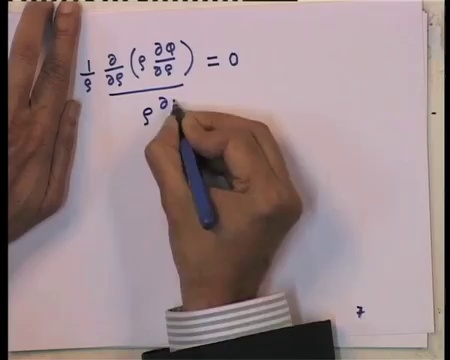 1/ρ ∂/∂ρ (ρ ∂φ/∂ρ) = 0
ρ ∂
7